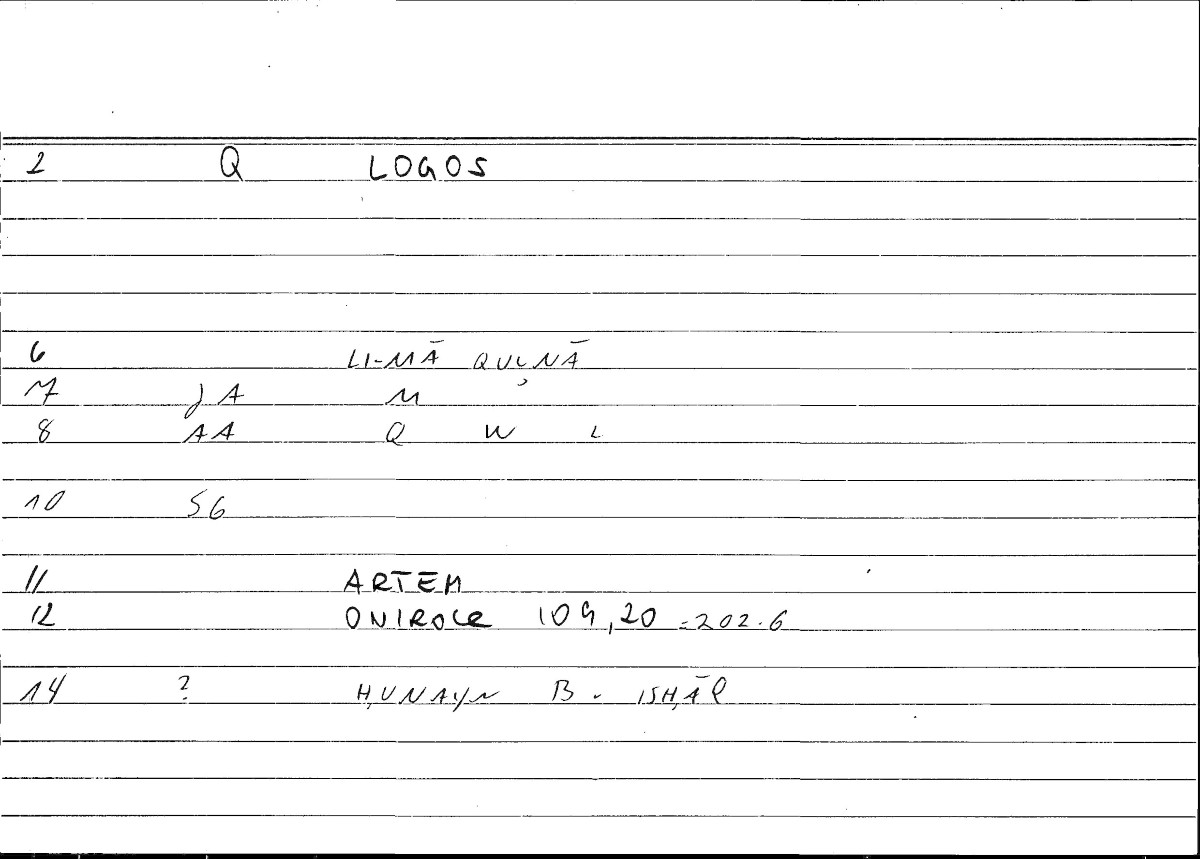 2 Q LOGOS
6 LI-MĀ QULNĀ
7 JA M
8 AA Q W L
10 SG
11 ARTEM
12 ONIROCR 109,20 =202.6
14 ? ḤUNAYN B. ISḤĀQ